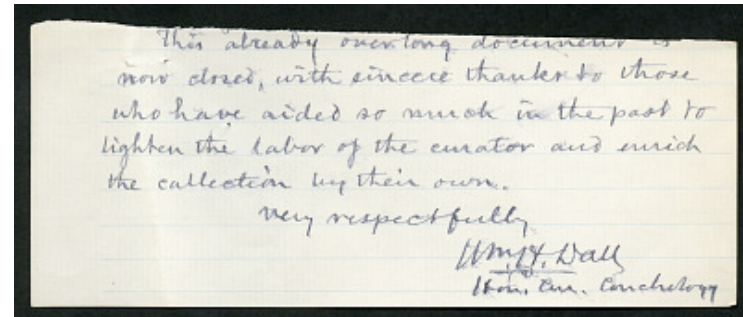 This already overlong document is
now closed, with sincere thanks to those
who have aided so much in the past to
lighten the labor of the curator and enrich
the collection by their own.
Very respectfully
Wm. H. Dall
Hon. Cur. Conchology